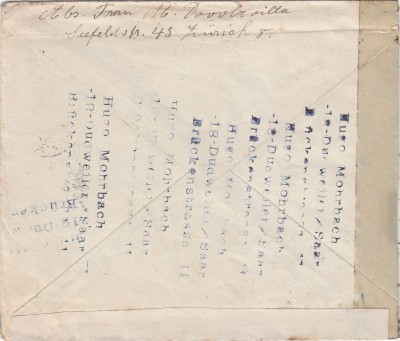 Abs. Frau M.
Seefeldstr. 43 Zürich 8.
Hugo Mohrbach
-18-Dudweiler/Saar
Brückenstrasse 11
Hugo Mohrbach
-18-Dudweiler/Saar
Brückenstrasse 11
Hugo Mohrbach
-18-Dudweiler/Saar
Brückenstrasse 11
Hugo Mohrbach
-18-Dudweiler/Saar
Brückenstrasse 11
Hugo Mohrbach
-18-Dudweiler/Saar
Brücken
-18-Du
Brücken